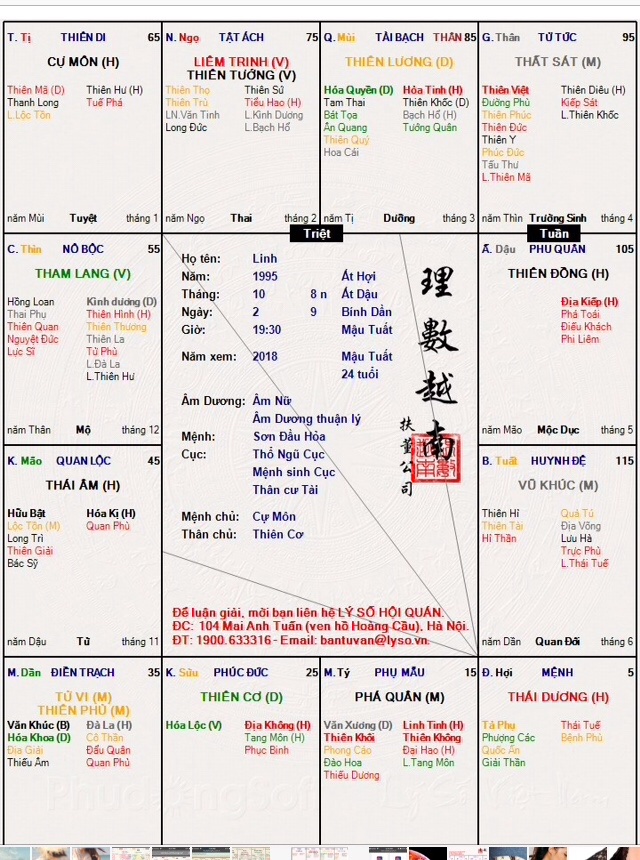 T. Tị THIÊN DI 65
CỰ MÔN (H)
Thiên Mã (D) Thiên Hư (H)
Thanh Long Tuế Phá
L.Lộc Tồn
năm Mùi Tuyệt tháng 1
N. Ngọ TẬT ÁCH 75
LIÊM TRINH (V)
THIÊN TƯỚNG (V)
Thiên Thọ Thiên Sứ
Thiên Trù Tiểu Hao (H)
LN.Văn Tinh L.Kình Dương
Long Đức L.Bạch Hổ
năm Ngọ Thai tháng 2
Q. Mùi TÀI BẠCH THÂN 85
THIÊN LƯƠNG (D)
Hóa Quyền (D) Hỏa Tinh (H)
Tam Thai Thiên Khốc (D)
Bát Tọa Bạch Hổ (H)
Ân Quang Tướng Quân
Thiên Quý
Hoa Cái
năm Tị Dưỡng tháng 3
G. Thân TỬ TỨC 95
THẤT SÁT (M)
Thiên Việt Thiên Diêu (H)
Đường Phù Kiếp Sát
Thiên Phúc L.Thiên Khốc
Thiên Đức
Thiên Y
Phúc Đức
Tấu Thư
L.Thiên Mã
năm Thìn Trường Sinh tháng 4
Triệt
Tuần
C. Thìn NÔ BỘC 55
THAM LANG (V)
Hồng Loan Kình dương (D)
Thai Phụ Thiên Hình (H)
Thiên Quan Thiên Thương
Nguyệt Đức Thiên La
Lực Sĩ Tử Phù
L.Đà La
L.Thiên Hư
năm Thân Mộ tháng 12
Họ tên: Linh
Năm: 1995 Ất Hợi
Tháng: 10 8 n Ất Dậu
Ngày: 2 9 Bính Dần
Giờ: 19:30 Mậu Tuất
Năm xem: 2018 Mậu Tuất
24 tuổi
Âm Dương: Âm Nữ
Âm Dương thuận lý
Mệnh: Sơn Đầu Hỏa
Cục: Thổ Ngũ Cục
Mệnh sinh Cục
Thân cư Tài
Mệnh chủ: Cự Môn
Thân chủ: Thiên Cơ
理數越南
扶董公司
Để luận giải, mời bạn liên hệ LÝ SỐ HỘI QUÁN.
ĐC: 104 Mai Anh Tuấn (ven hồ Hoàng Cầu), Hà Nội.
ĐT: 1900.633316 - Email: bantuvan@lyso.vn.
Ấ. Dậu PHU QUÂN 105
THIÊN ĐỒNG (H)
Địa Kiếp (H)
Phá Toái
Điếu Khách
Phi Liêm
năm Mão Mộc Dục tháng 5
K. Mão QUAN LỘC 45
THÁI ÂM (H)
Hữu Bật Hóa Kị (H)
Lộc Tồn (M) Quan Phủ
Long Trì
Thiên Giải
Bác Sỹ
năm Dậu Tử tháng 11
B. Tuất HUYNH ĐỆ 115
VŨ KHÚC (M)
Thiên Hỉ Quả Tú
Thiên Tài Địa Võng
Hỉ Thần Lưu Hà
Trực Phù
L.Thái Tuế
năm Dần Quan Đới tháng 6
M. Dần ĐIỀN TRẠCH 35
TỬ VI (M)
THIÊN PHỦ (M)
Văn Khúc (B) Đà La (H)
Hóa Khoa (D) Cô Thần
Địa Giải Đẩu Quân
Thiếu Âm Quan Phủ
K. Sửu PHÚC ĐỨC 25
THIÊN CƠ (D)
Hóa Lộc (V) Địa Không (H)
Tang Môn (H)
Phục Binh
M. Tý PHỤ MẪU 15
PHÁ QUÂN (M)
Văn Xương (D) Linh Tinh (H)
Thiên Khôi Thiên Không
Phong Cáo Đại Hao (H)
Đào Hoa L.Tang Môn
Thiếu Dương
Đ. Hợi MỆNH 5
THÁI DƯƠNG (H)
Tả Phụ Thái Tuế
Phượng Các Bệnh Phù
Quốc Ấn
Giải Thần